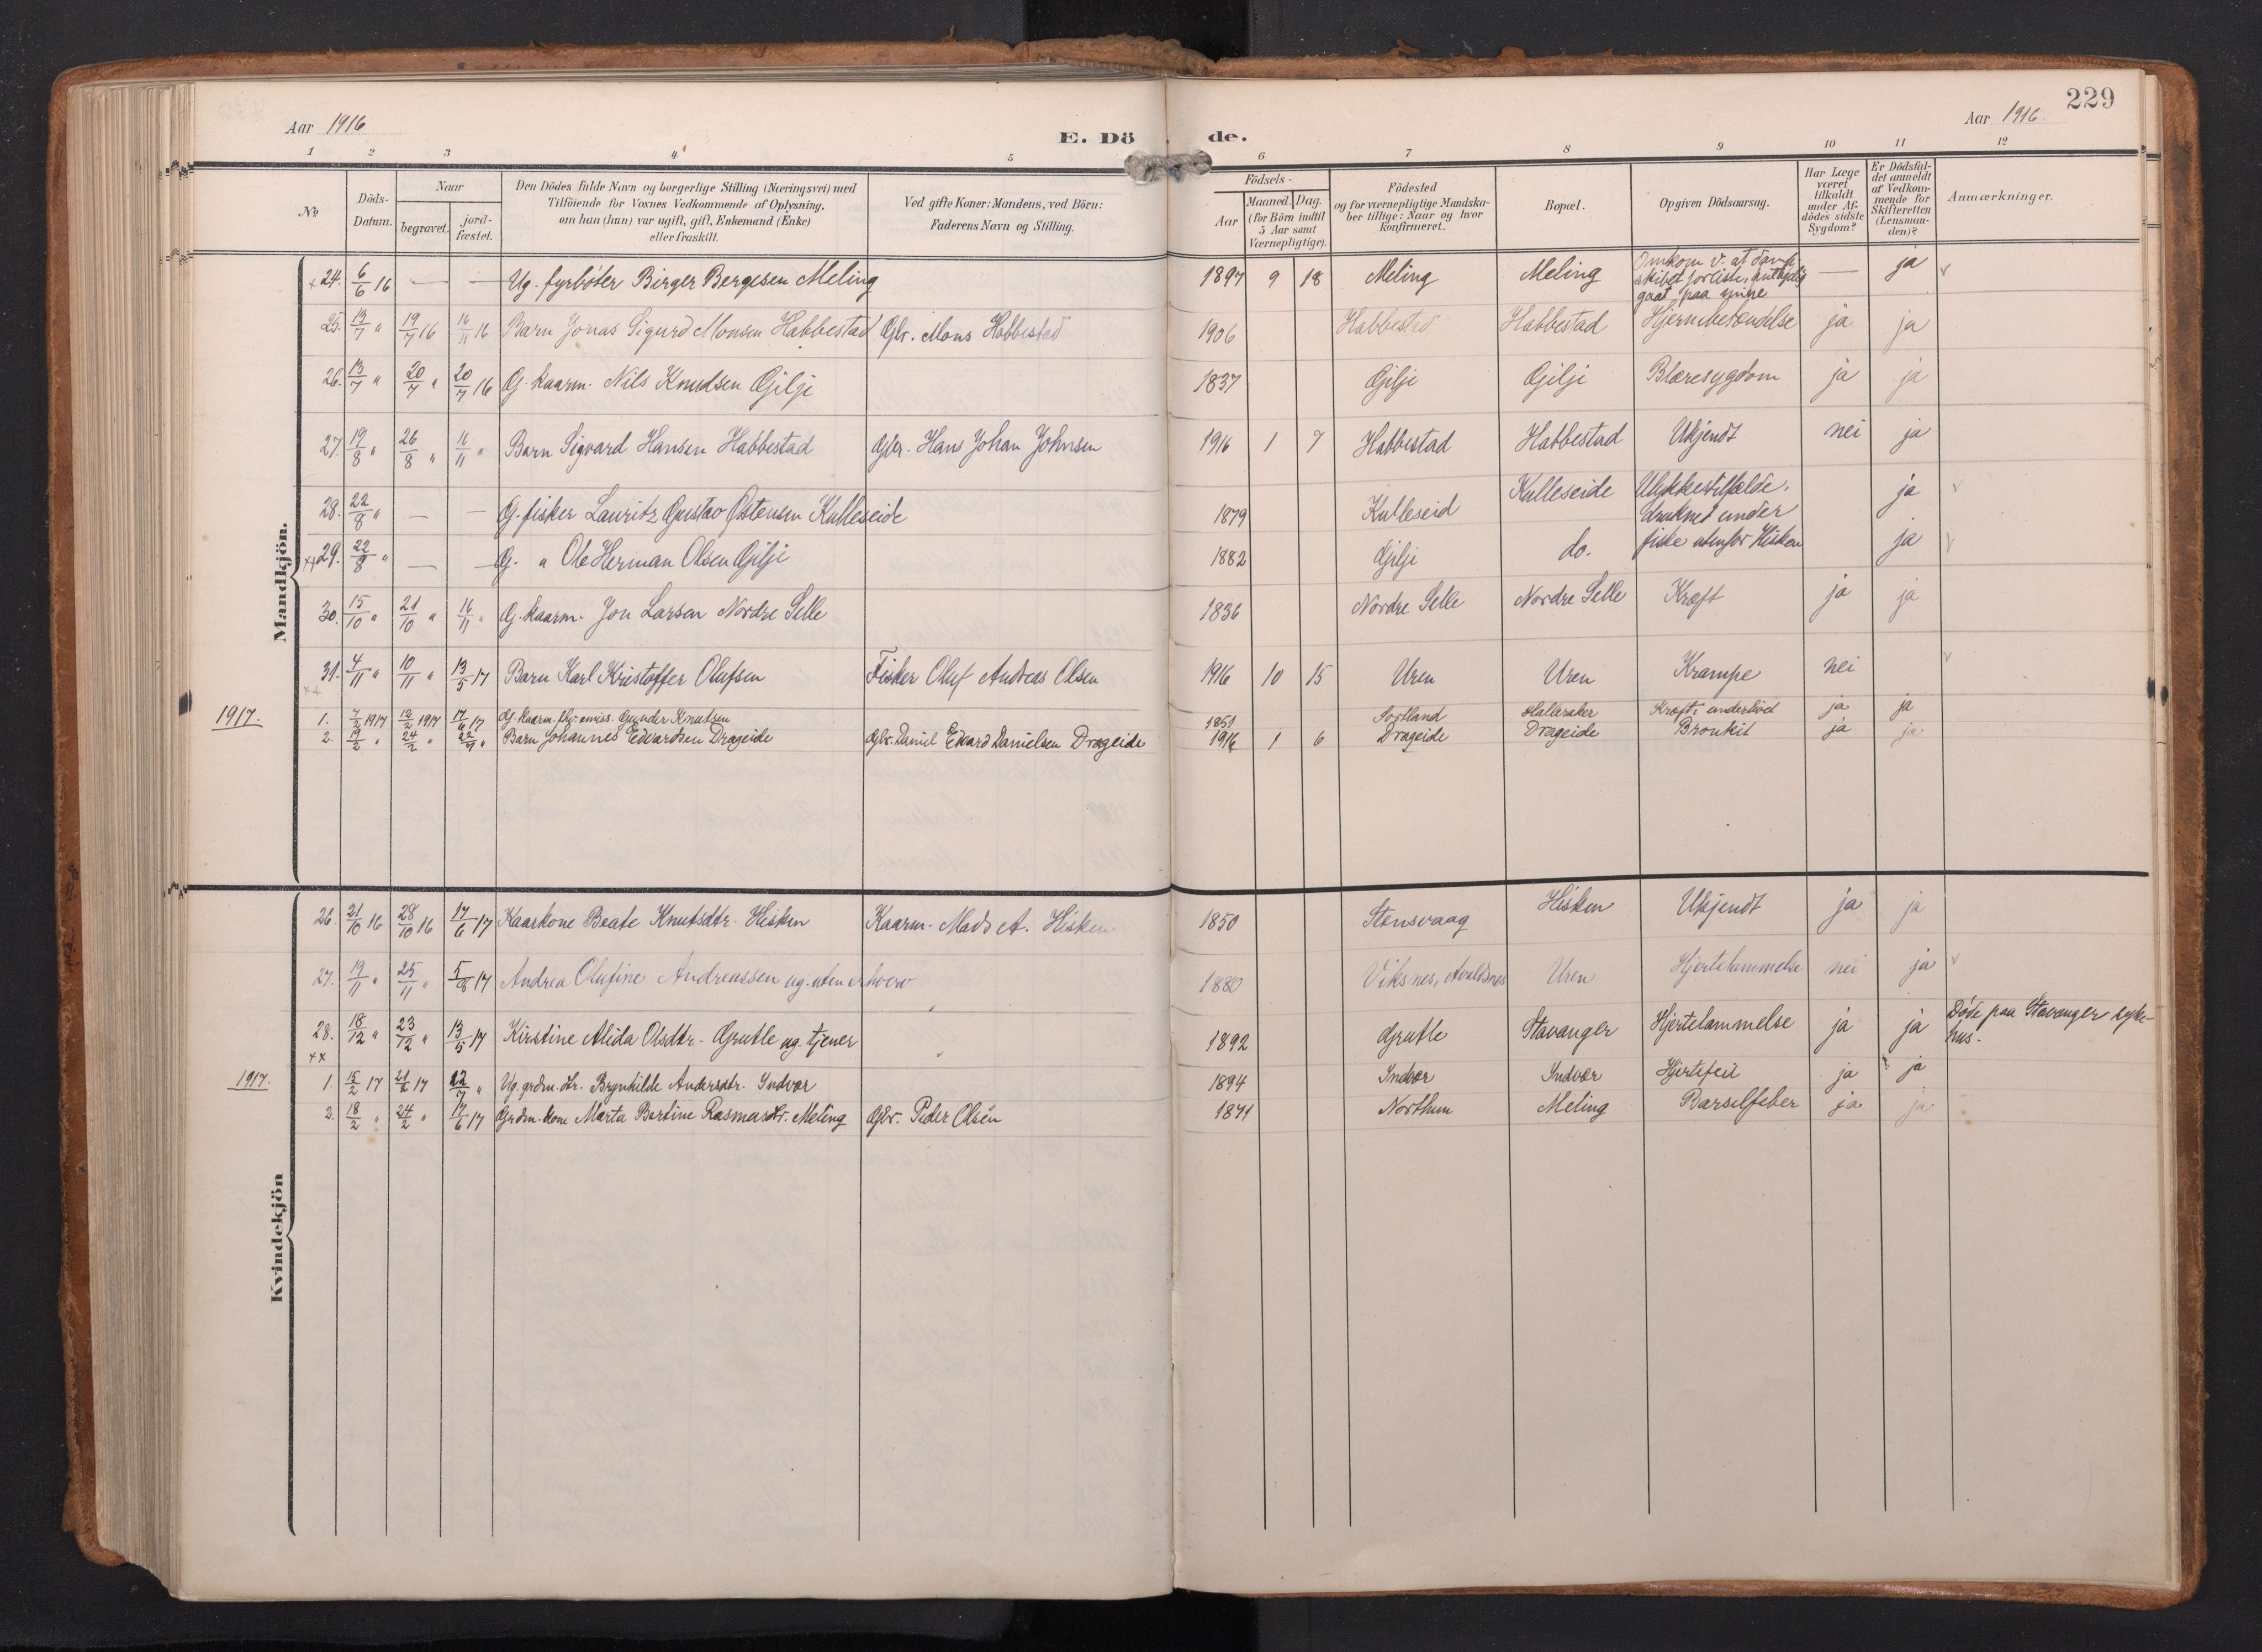 229
Aar 1916
Aar 1916.
E. Dö de.
1 2 3 4 5 6 7 8 9 10 11 12
No
Döds-Datum.
Naar
begravet.
jord-fæstet.
Den Dödes fulde Navn og borgerlige Stilling (Næringsvei) med
Tilföiende for Voxnes Vedkommende af Oplysning,
om han (hun) var ugift, gift, Enkemand (Enke)
eller fraskilt.
Ved gifte Koner: Mandens, ved Börn:
Faderens Navn og Stilling.
Födsels-
Aar
Maaned. Dag.
(for Börn indtil
5 Aar samt
Værnepligtige).
Födested
og for værnepligtige Mandska-
ber tillige: Naar og hvor
konfirmeret.
Bopæl.
Opgiven Dödsaarsag.
Har Læge
været
tilkaldt
under Af-
dödes sidste
Sygdom?
Er Dödsfal-
det anmeldt
af Vedkom-
mende for
Skifteretten
(Lensman-
den)?
Anmærkninger.
Mandkjön.
24. 6/6 16 — — Ug. fyrböter Birger Bergesen Meling 1897 9 18 Meling Meling Omkom v. at damp-
skibet forliste, antagelig
gaat paa mine — ja
25. 13/7 " 19/7 16 16/11 16 Barn Jonas Sigurd Monsen Habbestad Gbr. Mons Habbestad 1906 Habbestad Habbestad Hjernebetændelse ja ja
26. 13/7 " 20/7 " 20/7 16 G. kaarm. Nils Knudsen Gilje 1837 Gilje Gilje Blæresygdom ja ja
27. 19/8 " 26/8 " 16/11 " Barn Sigvard Hansen Habbestad Gbr. Hans Johan Johnsen 1916 1 7 Habbestad Habbestad Ukjendt nei ja
28. 22/8 " — — G. fisker Lauritz Gustav Østensen Kulleseide 1879 Kulleseid Kulleseide Ulykkestilfælde.
druknet under ja
29. 22/8 " — — G. " Ole Herman Olsen Gilje 1882 Gilje do. fiske utenfor Hisken ja
30. 15/10 " 21/10 " 16/11 " G. kaarm. Jon Larsen Nordre Selle 1836 Nordre Selle Nordre Selle Kræft ja ja
31. 4/11 " 10/11 " 13/5 17 Barn Karl Kristoffer Olufsen Fisker Oluf Andreas Olsen 1916 10 15 Uren Uren Krampe nei
1917.
1. 7/2 1917 12/2 1917 17/6 17 G. kaarm. Gunder Knutsen 1851 Sortland Halleraker Kræft i underlivet ja ja
2. 19/2 " 24/2 " 22/7 " Barn Johannes Edvardsen Drageide Gbr. Daniel Edvard Danielsen Drageide 1916 1 6 Drageide Drageide Bronkit ja ja
Kvindekjön
26 21/10 16 28/10 16 17/6 17 Kaarkone Beate Knutsdtr. Hisken Kaarm. Mads A. Hisken 1850 Stensvaag Hisken Ukjendt ja ja
27. 19/11 " 25/11 " 5/8 17 Andrea Olufine Andreassen ug. uten erhverv 1880 Viksnes, Avaldsnes Uren Hjertelammelse nei ja
28. 18/12 " 23/12 " 13/5 17 Kirstine Alida Olsdtr. Grutle ug. tjener 1892 Grutle Stavanger Hjertelammelse ja ja Döde paa Stavanger syke-
hus.
1917.
1. 15/2 17 21/2 17 22/7 " Ug. grdm. dtr. Brynhilde Andersdtr. Indvær 1894 Indvær Indvær Hjertefeil ja ja
2. 18/2 " 24/2 " 17/6 17 Grdm. kone Marta Bertine Rasmusdtr. Meling Gbr. Peder Olsen 1871 Northun Meling Barselfeber ja ja